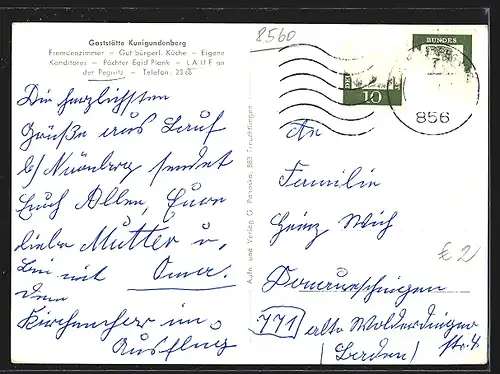 Gaststätte Kunigundenberg
Fremdenzimmer – Gut bürgerl. Küche – Eigene
Konditorei – Pächter Egid Plank – LAUF an
der Pegnitz – Telefon: 23 66
8560
BUNDES
10
856
Die herzlichsten
Grüße aus Lauf
b/ Nürnberg sendet
Euch Allen, Eure
liebe Mutter u.
Oma.
Bin mit
dem
Kirchenchor im
Ausflug
Aufn. und Verlag G. 883 Treuchtlingen
An
Familie
Heinz Wich
£ 2
Donaueschingen
771 alte Wolterdinger
str. 4
(Baden)